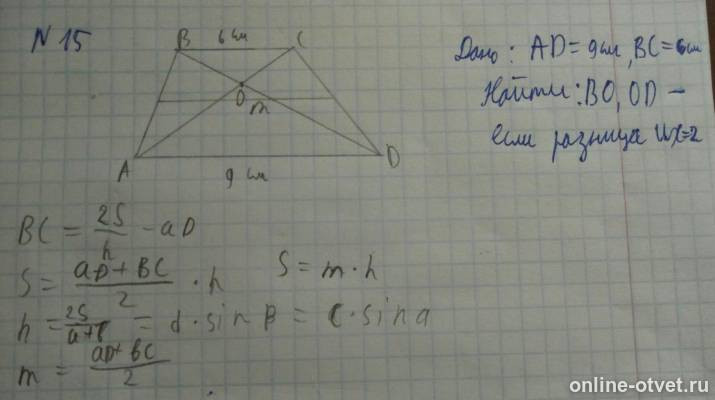 N 15
B 6 см C
O
m
A D
9 см
Дано: AD=9см, BC=6см
Найти: BO, OD –
если разница их=2
BC = 2S/h - aD
S = aD+BC/2 · h S = m·h
h = 2S/a+b = d·sin β = C·sin a
m = aD+BC/2
online-otvet.ru